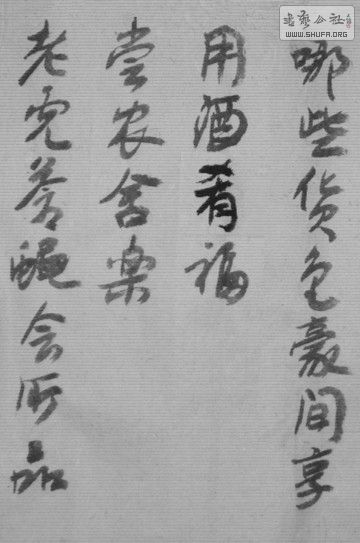 哪些货色豪间享
用酒肴福
尝农舍乐
老虎苍蝇会所品
书艺公社
WWW.SHUFA.ORG